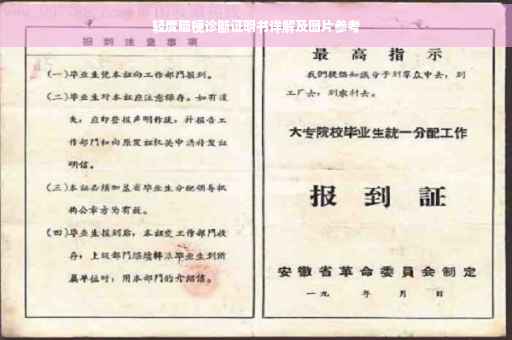 轻度脑梗诊断证明书详解及图片参考
报到注意事项
(一)毕业生凭本证向工作部门报到。
(二)毕业生对本证应注意保存。如有遗
失,应即登报声明作废,并报告工
作部门和向原发证机关申请补发证
明信。
(三)本证必须加盖省毕业生分配领导机
构公章方为有效。
(四)毕业生报到后,本证交工作部门收
存;上级部门继续转派毕业生到所
属单位时,用本部门的介绍信。
最高指示
我们提倡知识分子到群众中去,到
工厂去,到农村去。
大专院校毕业生统一分配工作
报到证
安徽省革命委员会制定
一九 年 月 日